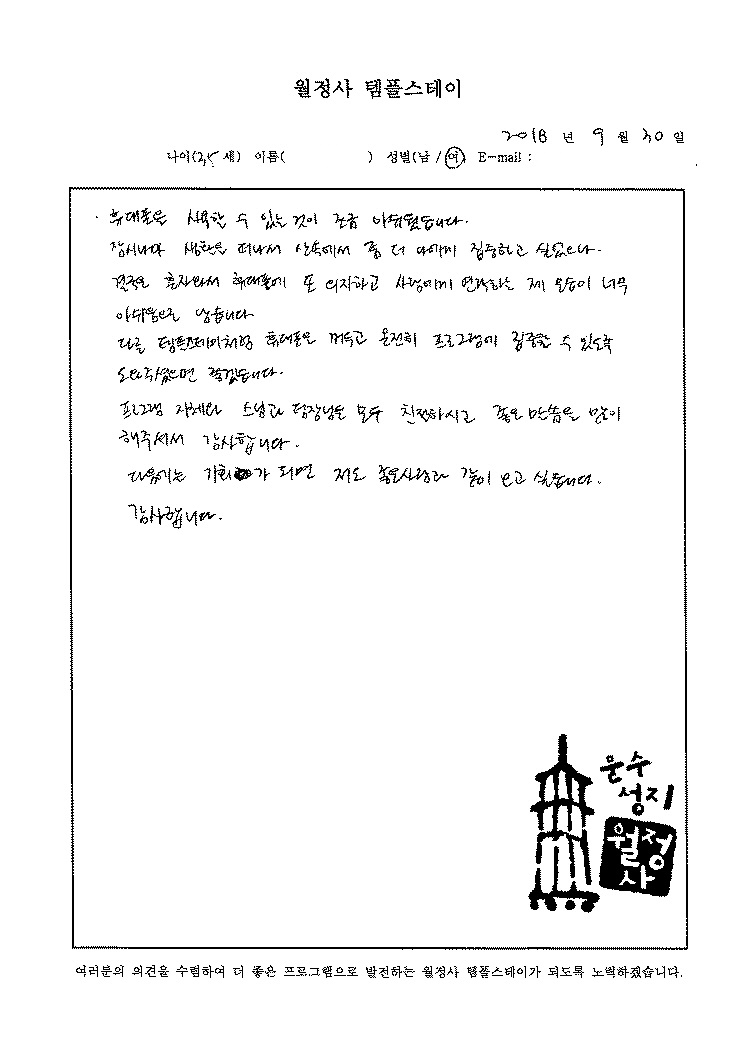 월정사 템플스테이
2018 년 9 월 30 일
나이(35 세) 이름( ) 성별(남 / 여) E-mail :
휴대폰을 사용할 수 있는 것이 조금 아쉬웠습니다.
잠시나마 생활을 떠나서 산속에서 좀 더 나에게 집중하고 싶었으나.
혼자와서 휴대폰에 또 의지하고 사람에게 연락하는 제 모습이 너무
아쉬움으로 남습니다
다른 템플스테이처럼 휴대폰은 꺼두고 온전히 프로그램에 집중할 수 있도록
도와주셨으면 좋겠습니다.
프로그램 자체와 스님과 팀장님은 모두 친절하시고 좋은 말씀을 많이
해주셔서 감사합니다.
다음에는 기회가 되면 저도 좋은사람과 같이 오고 싶습니다.
감사합니다.
문수
성지
월정
사
여러분의 의견을 수렴하여 더 좋은 프로그램으로 발전하는 월정사 템플스테이가 되도록 노력하겠습니다.